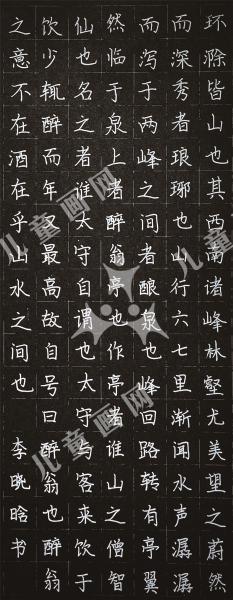 环滁皆山也其西南诸峰林壑尤美望之蔚然
而深秀者琅琊也山行六七里渐闻水声潺潺
而泻于两峰之间者酿泉也峰回路转有亭翼
然临于泉上者醉翁亭也作亭者谁山之僧智
仙也名之者谁太守自谓也太守与客来饮于
饮少辄醉而年又最高故自号曰醉翁也醉翁
之意不在酒在乎山水之间也
李晓晗书
儿童画网
儿童画网
儿童画网
儿童画网